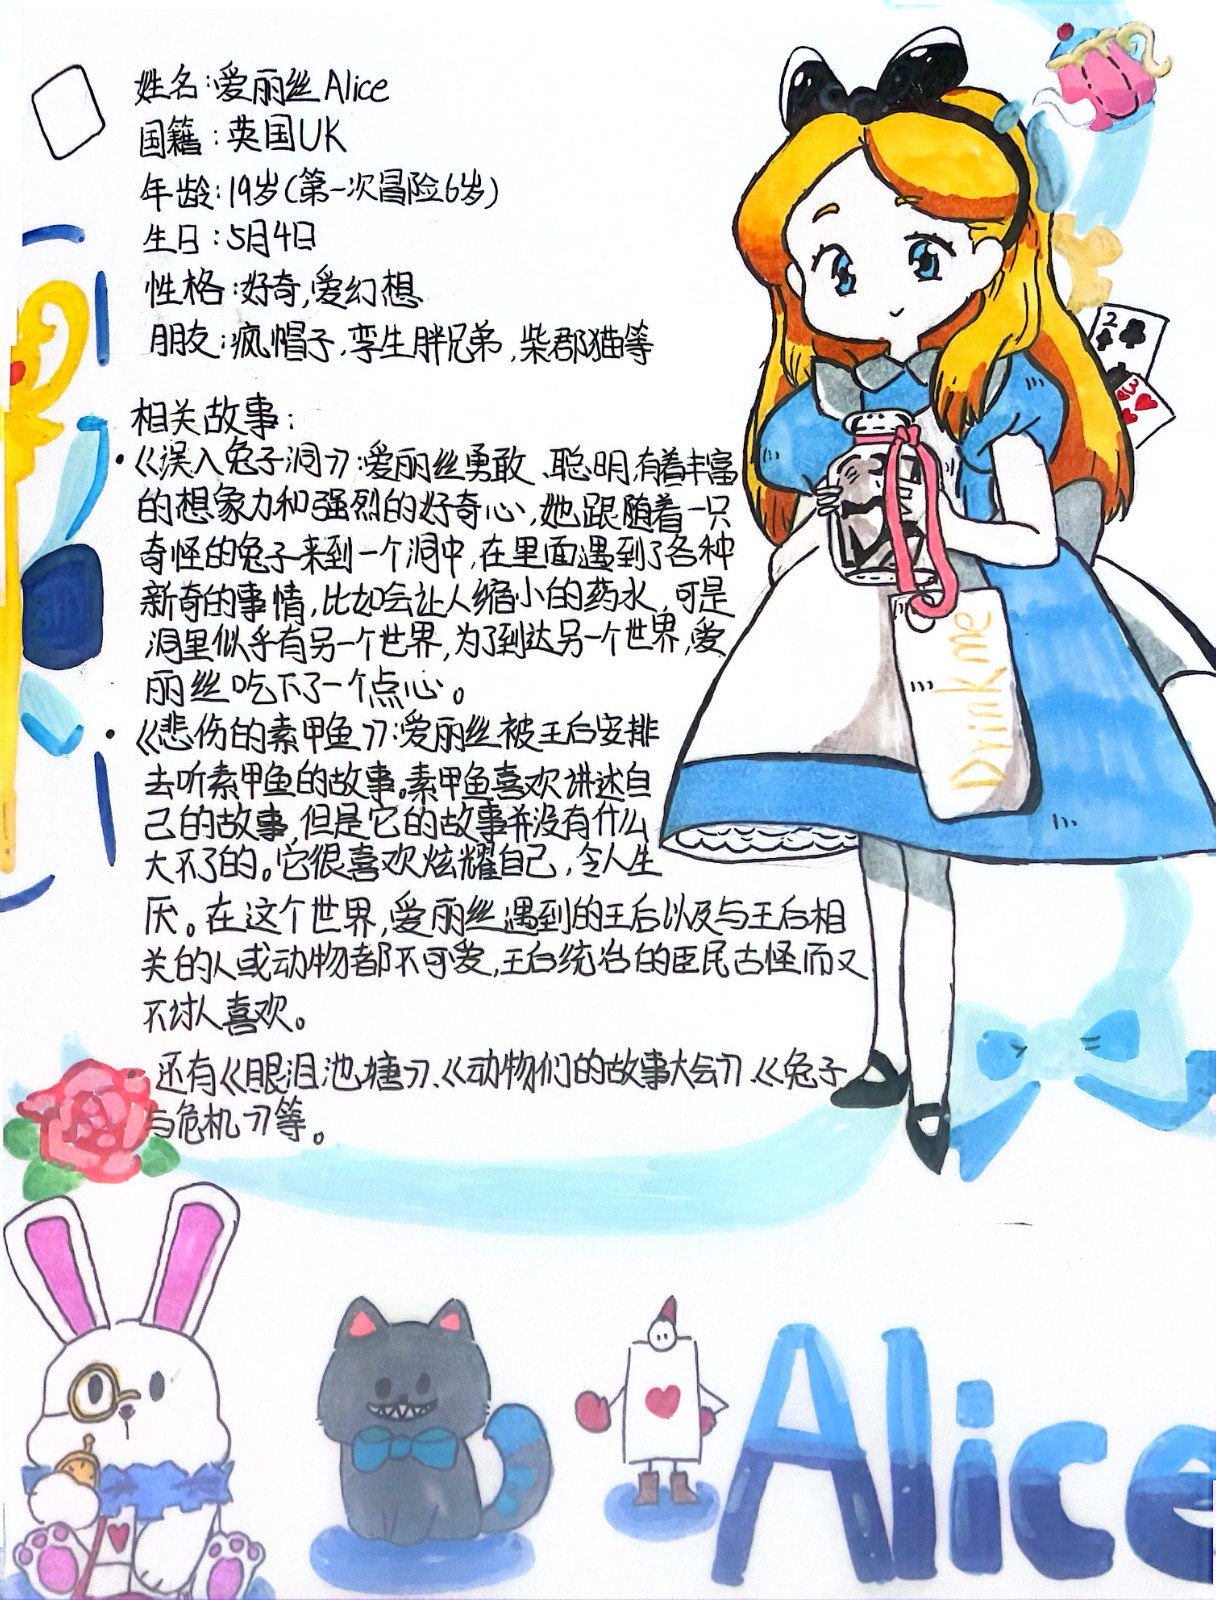 姓名:爱丽丝Alice
国籍:英国UK
年龄:19岁(第一次冒险6岁)
生日:5月4日
性格:好奇,爱幻想
朋友:疯帽子,孪生胖兄弟,柴郡猫等
相关故事:
·《误入兔子洞》:爱丽丝勇敢、聪明,有着丰富
的想象力和强烈的好奇心,她跟随着一只
奇怪的兔子来到一个洞中,在里面遇到了各种
新奇的事情,比如会让人缩小的药水,可是
洞里似乎有另一个世界,为了到达另一个世界,爱
丽丝吃下了一个点心。
·《悲伤的素甲鱼》:爱丽丝被王后安排
去听素甲鱼的故事。素甲鱼喜欢讲述自
己的故事,但是它的故事并没有什么
大不了的。它很喜欢炫耀自己,令人生
厌。在这个世界,爱丽丝遇到的王后以及与王后相
关的人或动物都不可爱,王后统治的臣民古怪而又
不讨人喜欢。
还有《眼泪池塘》、《动物们的故事大会》、《兔子
与危机》等。
2
3
Drink me
Alice